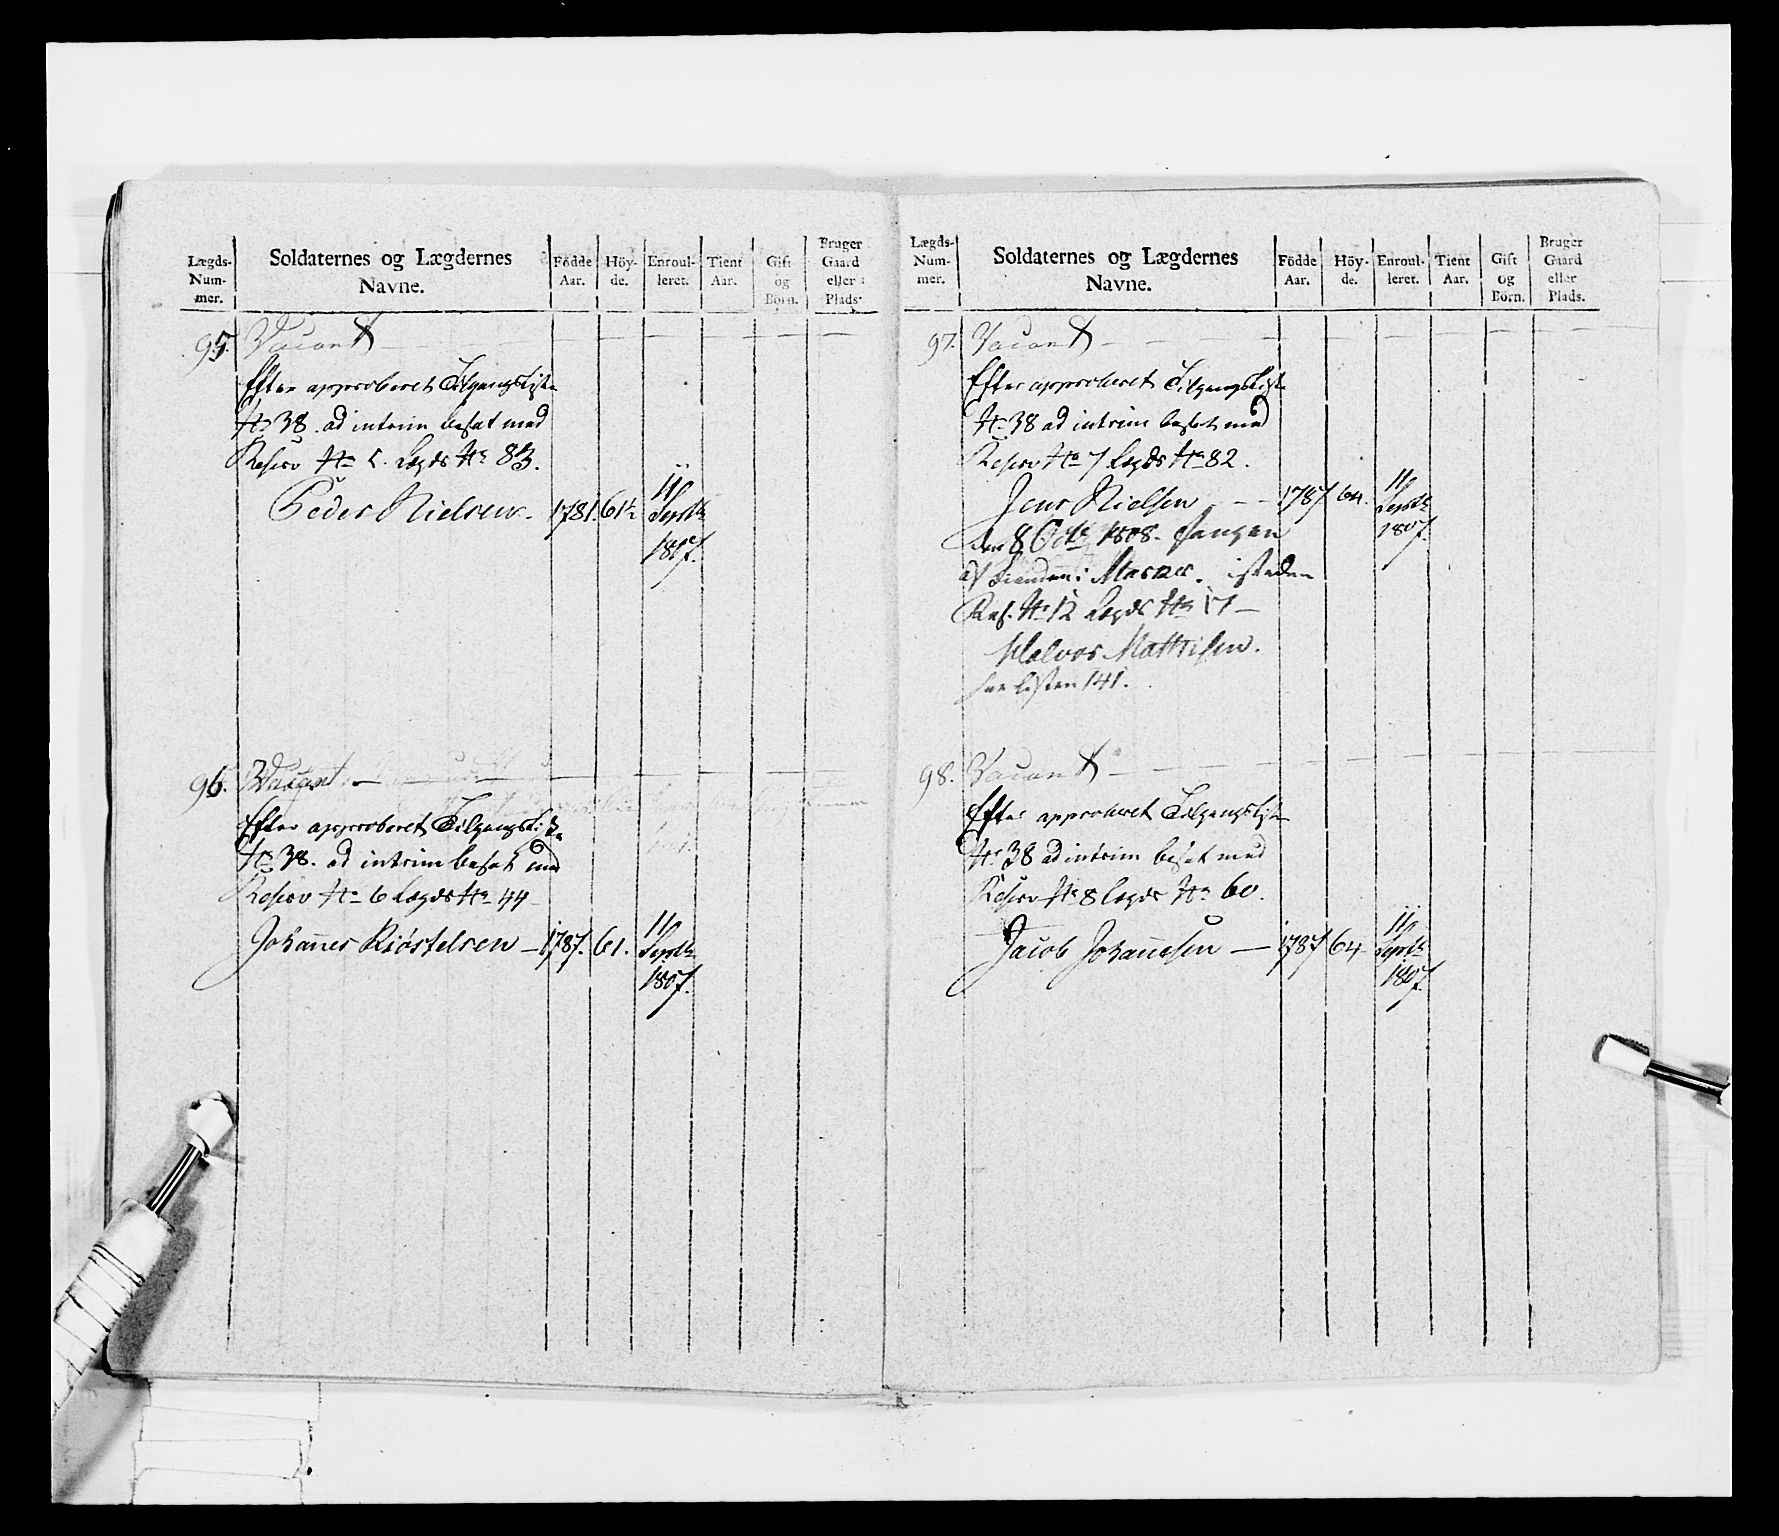 Lægds-Num-mer. Soldaternes og Lægdernes Navne. Födde Aar. Höy-de. Enroul-leret. Tient Aar. Gift og Börn. Bruger Gaard eller Plads.
95. Vacant
Efter approberet Tilgangsliste
No 38. ad interim besat med
Reserv No 5. Lægds No 83.
Peder Nielsen. 1781. 61½ 11 Septb. 1807.
96. Vacant
Efter approberet Tilgangsliste
No 38. ad interim besat med
Reserv No 6 Lægds No 44
Johannes Kiöstelsen 1787. 61. 11 Septb. 1807.
Lægds-Num-mer. Soldaternes og Lægdernes Navne. Födde Aar. Höy-de. Enroul-leret. Tient Aar. Gift og Börn. Bruger Gaard eller Plads.
97. Vacant
Efter approberet Tilgangsliste
No 38 ad interim besat med
Reserv No 7 Lægds No 82.
Jens Nielsen 1787 64. 11 Septb. 1807.
den 8 Octb 1808. fangen
af fienden i isteden
Res. No 12 Lægds No 17
Halvor Mattisen.
see listen 141.
98. Vacant
Efter approberet Tilgangsliste
No 38 ad interim besat med
Reserv No 8 Lægds No 60.
Jacob Johannesen 1787 64 11 Septb. 1807.